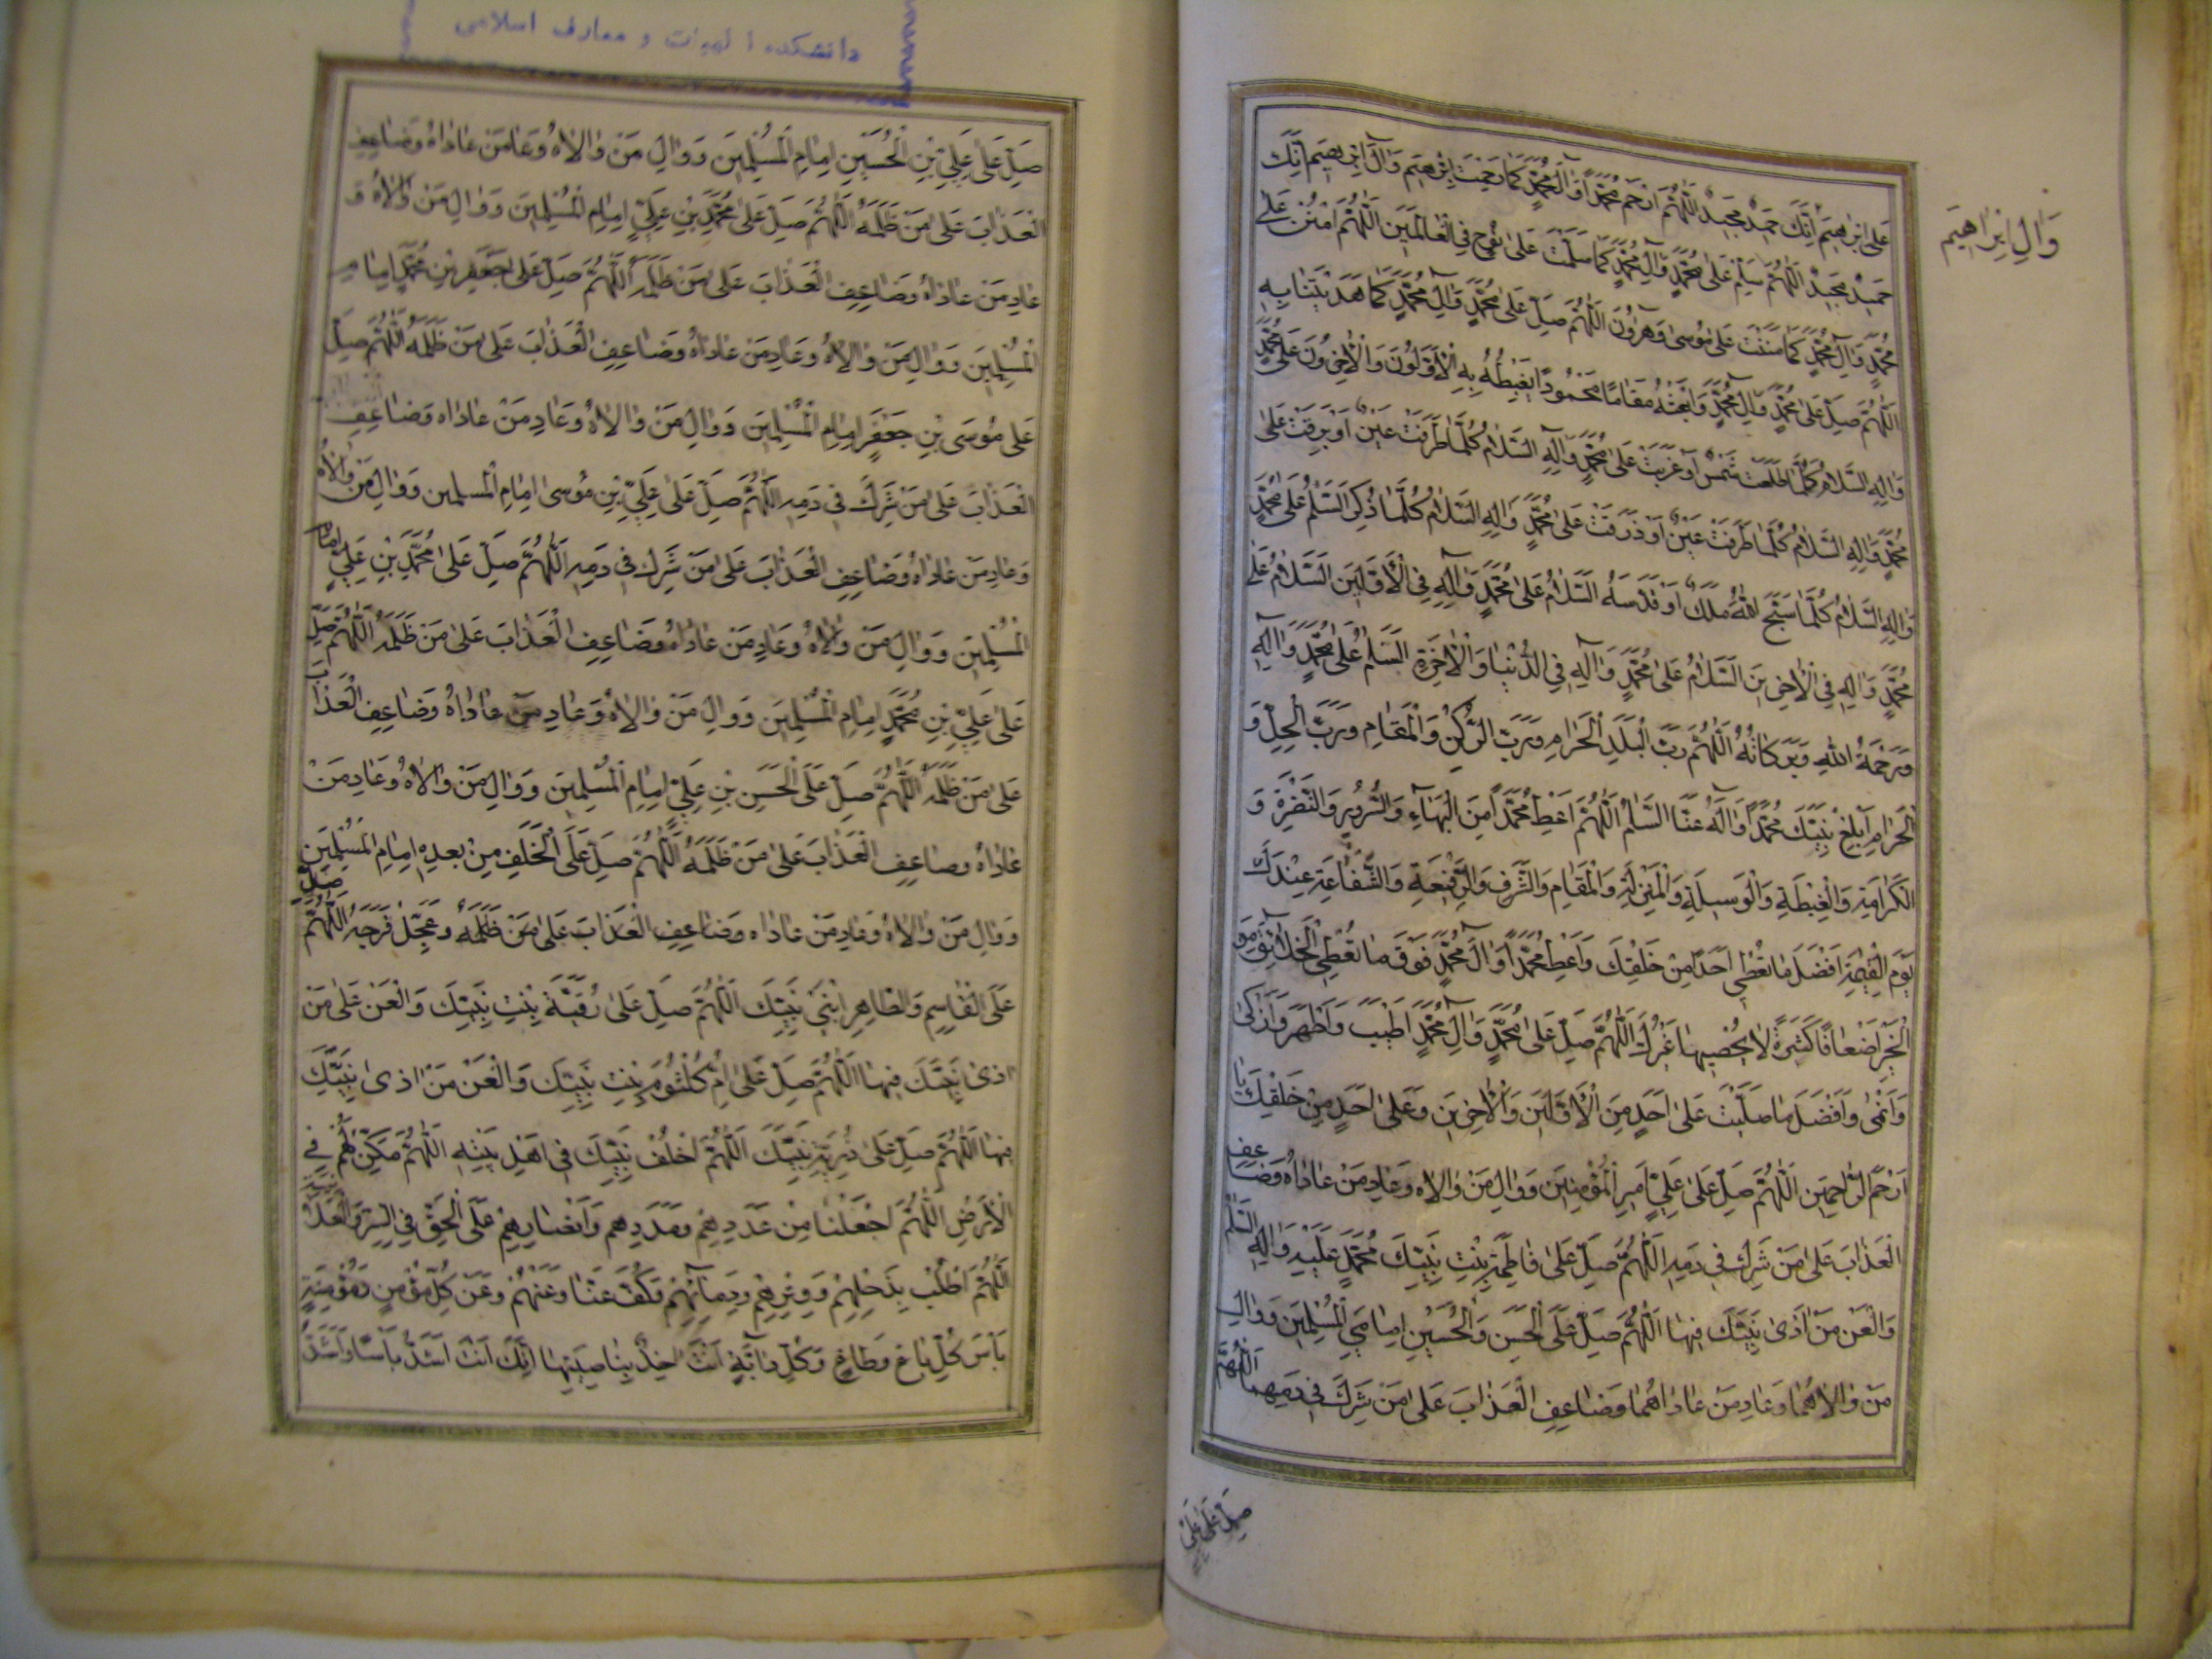 وَآلِ اِبْرَاهِيمَ
عَلَى اِبْرٰهِيمَ اِنَّكَ حَمِيدٌ مَجِيدٌ اَللّٰهُمَّ ارْحَمْ مُحَمَّدًا وَآلَ مُحَمَّدٍ كَمَا رَحِمْتَ اِبْرٰهِيمَ وَآلَ اِبْرٰهِيمَ اِنَّكَ
حَمِيدٌ مَجِيدٌ اَللّٰهُمَّ سَلِّمْ عَلَى مُحَمَّدٍ وَآلِ مُحَمَّدٍ كَمَا سَلَّمْتَ عَلَى نُوحٍ فِي الْعَالَمِينَ اَللّٰهُمَّ امْنُنْ عَلَى
مُحَمَّدٍ وَآلِ مُحَمَّدٍ كَمَا مَنَنْتَ عَلَى مُوسَى وَهٰرُونَ اَللّٰهُمَّ صَلِّ عَلَى مُحَمَّدٍ وَآلِ مُحَمَّدٍ كَمَا هَدَيْتَنَا بِهِ
اَللّٰهُمَّ صَلِّ عَلَى مُحَمَّدٍ وَآلِ مُحَمَّدٍ وَابْعَثْهُ مَقَامًا مَحْمُودًا يَغْبِطُهُ بِهِ الْاَوَّلُونَ وَالْاٰخِرُونَ عَلَى مُحَمَّدٍ
وَآلِهِ السَّلَامُ كُلَّمَا طَلَعَتْ شَمْسٌ اَوْ غَرَبَتْ عَلَى مُحَمَّدٍ وَآلِهِ السَّلَامُ كُلَّمَا طَرَفَتْ عَيْنٌ اَوْ بَرَقَتْ عَلَى
مُحَمَّدٍ وَآلِهِ السَّلَامُ كُلَّمَا طَرَفَتْ عَيْنٌ اَوْ ذَرَفَتْ عَلَى مُحَمَّدٍ وَآلِهِ السَّلَامُ كُلَّمَا ذُكِرَ السَّلٰمُ عَلَى مُحَمَّدٍ
وَآلِهِ السَّلَامُ كُلَّمَا سَبَّحَ اللّٰهَ مَلَكٌ اَوْ قَدَّسَهُ السَّلَامُ عَلَى مُحَمَّدٍ وَآلِهِ فِي الْاَوَّلِينَ السَّلَامُ عَلَى
مُحَمَّدٍ وَآلِهِ فِي الْاٰخِرِينَ السَّلَامُ عَلَى مُحَمَّدٍ وَآلِهِ فِي الدُّنْيَا وَالْاٰخِرَةِ السَّلٰمُ عَلَى مُحَمَّدٍ وَآلِهِ
وَرَحْمَةُ اللّٰهِ وَبَرَكَاتُهُ اَللّٰهُمَّ رَبَّ الْبَلَدِ الْحَرَامِ وَرَبَّ الرُّكْنِ وَالْمَقَامِ وَرَبَّ الْحِلِّ وَ
الْحَرَامِ اَبْلِغْ نَبِيَّكَ مُحَمَّدًا وَآلَهُ عَنَّا السَّلٰمَ اَللّٰهُمَّ اَعْطِ مُحَمَّدًا مِنَ الْبَهَاءِ وَالسُّرُورِ وَالنَّضْرَةِ وَ
الْكَرَامَةِ وَالْغِبْطَةِ وَالْوَسِيلَةِ وَالْمَنْزِلَةِ وَالْمَقَامِ وَالشَّرَفِ وَالرِّفْعَةِ وَالشَّفَاعَةِ عِنْدَكَ
يَوْمَ الْقِيٰمَةِ اَفْضَلَ مَا تُعْطِي اَحَدًا مِنْ خَلْقِكَ وَاَعْطِ مُحَمَّدًا وَآلَ مُحَمَّدٍ فَوْقَ مَا تُعْطِي الْخَلَائِقَ مِنَ
الْخَيْرِ اَضْعَافًا كَثِيرَةً لَا يُحْصِيهَا غَيْرُكَ اَللّٰهُمَّ صَلِّ عَلَى مُحَمَّدٍ وَآلِ مُحَمَّدٍ اَطْيَبَ وَاَطْهَرَ وَاَزْكَى
وَاَنْمَى وَاَفْضَلَ مَا صَلَّيْتَ عَلَى اَحَدٍ مِنَ الْاَوَّلِينَ وَالْاٰخِرِينَ وَعَلَى اَحَدٍ مِنْ خَلْقِكَ يَا
اَرْحَمَ الرَّاحِمِينَ اَللّٰهُمَّ صَلِّ عَلَى عَلِيٍّ اَمِيرِ الْمُؤْمِنِينَ وَوَالِ مَنْ وَالَاهُ وَعَادِ مَنْ عَادَاهُ وَضَاعِفِ
الْعَذَابَ عَلَى مَنْ شَرِكَ فِي دَمِهِ اَللّٰهُمَّ صَلِّ عَلَى فَاطِمَةَ بِنْتِ نَبِيِّكَ مُحَمَّدٍ عَلَيْهِ وَآلِهِ السَّلٰمُ
وَالْعَنْ مَنْ آذَى نَبِيَّكَ فِيهَا اَللّٰهُمَّ صَلِّ عَلَى الْحَسَنِ وَالْحُسَيْنِ اِمَامَيِ الْمُسْلِمِينَ وَوَالِ
مَنْ وَالَاهُمَا وَعَادِ مَنْ عَادَاهُمَا وَضَاعِفِ الْعَذَابَ عَلَى مَنْ شَرِكَ فِي دَمِهِمَا اَللّٰهُمَّ
صَلِّ عَلَى عَلِيِّ
دانشکده الهیات و معارف اسلامی
صَلِّ عَلَى عَلِيِّ بْنِ الْحُسَيْنِ اِمَامِ الْمُسْلِمِينَ وَوَالِ مَنْ وَالَاهُ وَعَادِ مَنْ عَادَاهُ وَضَاعِفِ
الْعَذَابَ عَلَى مَنْ ظَلَمَهُ اَللّٰهُمَّ صَلِّ عَلَى مُحَمَّدِ بْنِ عَلِيٍّ اِمَامِ الْمُسْلِمِينَ وَوَالِ مَنْ وَالَاهُ وَ
عَادِ مَنْ عَادَاهُ وَضَاعِفِ الْعَذَابَ عَلَى مَنْ ظَلَمَهُ اَللّٰهُمَّ صَلِّ عَلَى جَعْفَرِ بْنِ مُحَمَّدٍ اِمَامِ
الْمُسْلِمِينَ وَوَالِ مَنْ وَالَاهُ وَعَادِ مَنْ عَادَاهُ وَضَاعِفِ الْعَذَابَ عَلَى مَنْ ظَلَمَهُ اَللّٰهُمَّ صَلِّ
عَلَى مُوسَى بْنِ جَعْفَرٍ اِمَامِ الْمُسْلِمِينَ وَوَالِ مَنْ وَالَاهُ وَعَادِ مَنْ عَادَاهُ وَضَاعِفِ
الْعَذَابَ عَلَى مَنْ شَرِكَ فِي دَمِهِ اَللّٰهُمَّ صَلِّ عَلَى عَلِيِّ بْنِ مُوسَى اِمَامِ الْمُسْلِمِينَ وَوَالِ مَنْ وَالَاهُ
وَعَادِ مَنْ عَادَاهُ وَضَاعِفِ الْعَذَابَ عَلَى مَنْ شَرِكَ فِي دَمِهِ اَللّٰهُمَّ صَلِّ عَلَى مُحَمَّدِ بْنِ عَلِيٍّ اِمَامِ
الْمُسْلِمِينَ وَوَالِ مَنْ وَالَاهُ وَعَادِ مَنْ عَادَاهُ وَضَاعِفِ الْعَذَابَ عَلَى مَنْ ظَلَمَهُ اَللّٰهُمَّ صَلِّ
عَلَى عَلِيِّ بْنِ مُحَمَّدٍ اِمَامِ الْمُسْلِمِينَ وَوَالِ مَنْ وَالَاهُ وَعَادِ مَنْ عَادَاهُ وَضَاعِفِ الْعَذَابَ
عَلَى مَنْ ظَلَمَهُ اَللّٰهُمَّ صَلِّ عَلَى الْحَسَنِ بْنِ عَلِيٍّ اِمَامِ الْمُسْلِمِينَ وَوَالِ مَنْ وَالَاهُ وَعَادِ مَنْ
عَادَاهُ وَضَاعِفِ الْعَذَابَ عَلَى مَنْ ظَلَمَهُ اَللّٰهُمَّ صَلِّ عَلَى الْخَلَفِ مِنْ بَعْدِهِ اِمَامِ الْمُسْلِمِينَ
وَوَالِ مَنْ وَالَاهُ وَعَادِ مَنْ عَادَاهُ وَضَاعِفِ الْعَذَابَ عَلَى مَنْ ظَلَمَهُ وَعَجِّلْ فَرَجَهُ اَللّٰهُمَّ صَلِّ
عَلَى الْقَاسِمِ وَالطَّاهِرِ ابْنَيْ نَبِيِّكَ اَللّٰهُمَّ صَلِّ عَلَى رُقَيَّةَ بِنْتِ نَبِيِّكَ وَالْعَنْ عَلَى مَنْ
اٰذَى نَبِيَّكَ فِيهَا اَللّٰهُمَّ صَلِّ عَلَى اُمِّ كُلْثُومَ بِنْتِ نَبِيِّكَ وَالْعَنْ مَنْ اٰذَى نَبِيَّكَ
فِيهَا اَللّٰهُمَّ صَلِّ عَلَى ذُرِّيَّةِ نَبِيِّكَ اَللّٰهُمَّ اخْلُفْ نَبِيَّكَ فِي اَهْلِ بَيْتِهِ اَللّٰهُمَّ مَكِّنْ لَهُمْ فِي
الْاَرْضِ اَللّٰهُمَّ اجْعَلْنَا مِنْ عَدَدِهِمْ وَمَدَدِهِمْ وَاَنْصَارِهِمْ عَلَى الْحَقِّ فِي السِّرِّ وَالْعَلَانِيَةِ
اَللّٰهُمَّ اطْلُبْ بِذَحْلِهِمْ وَوِتْرِهِمْ وَدِمَائِهِمْ وَكُفَّ عَنَّا وَعَنْهُمْ وَعَنْ كُلِّ مُؤْمِنٍ وَمُؤْمِنَةٍ
بَأْسَ كُلِّ بَاغٍ وَطَاغٍ وَكُلِّ دَابَّةٍ اَنْتَ اٰخِذٌ بِنَاصِيَتِهَا اِنَّكَ اَنْتَ اَشَدُّ بَأْسًا وَاَشَدُّ